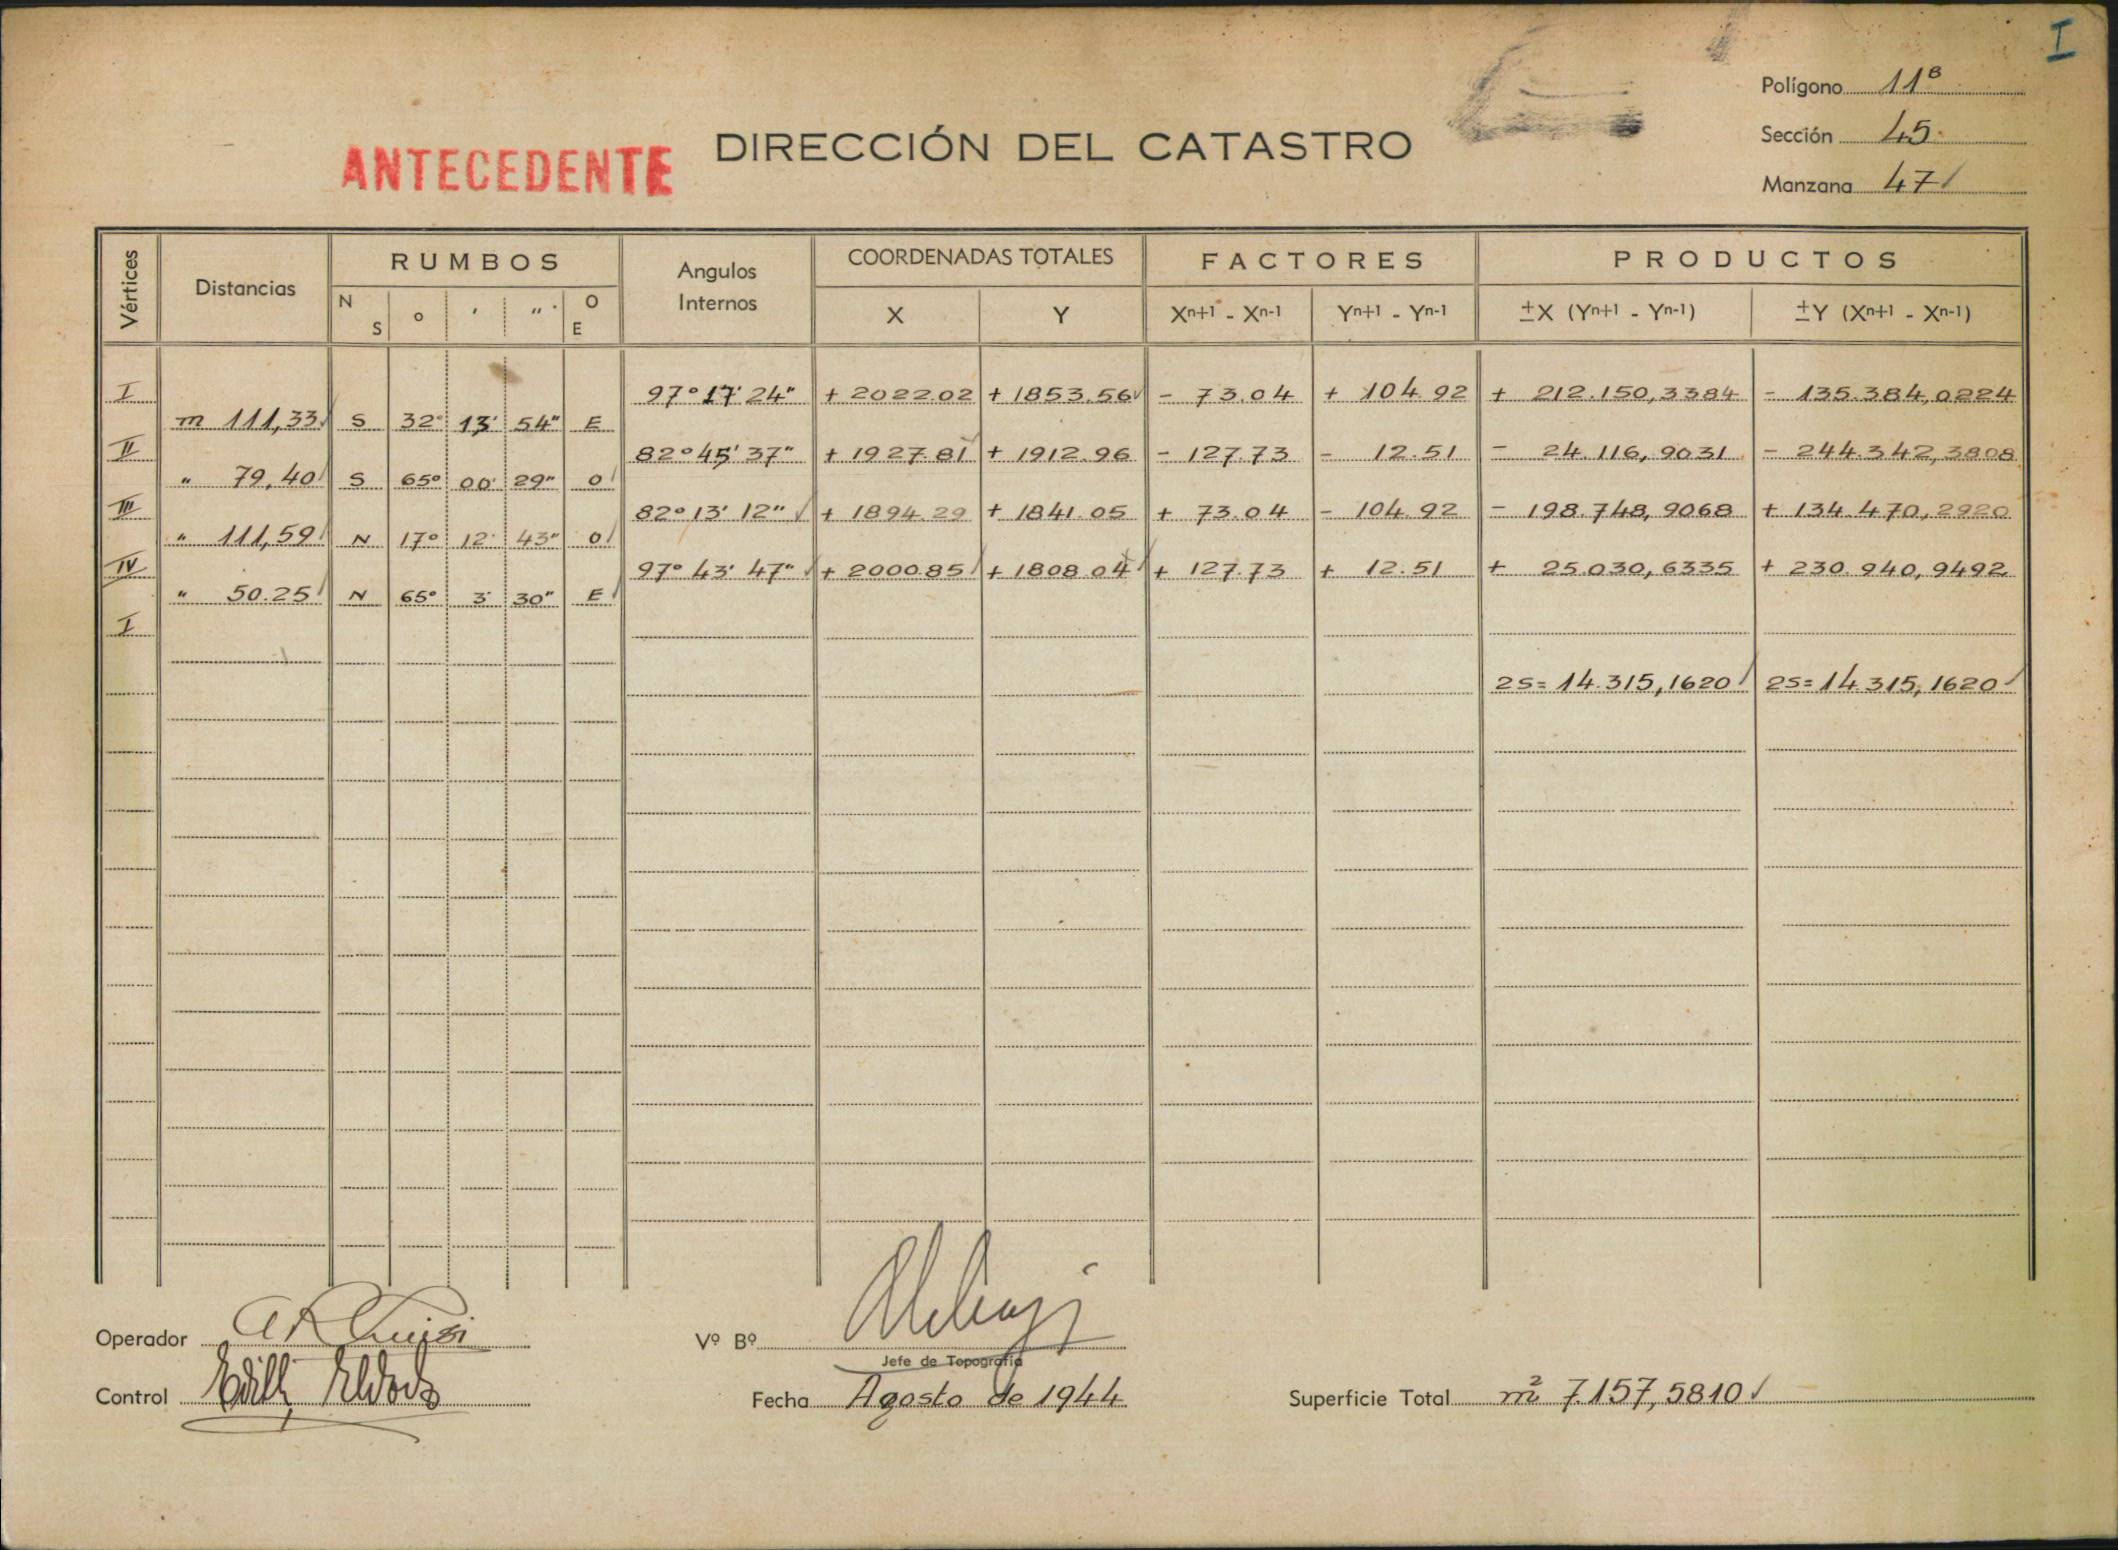 I
Polígono 11ᴮ
ANTECEDENTE
DIRECCIÓN DEL CATASTRO
Sección 45
Manzana 47
Vértices Distancias RUMBOS Angulos Internos COORDENADAS TOTALES FACTORES PRODUCTOS
N S o ' " O E X Y Xⁿ⁺¹ - Xⁿ⁻¹ Yⁿ⁺¹ - Yⁿ⁻¹ ±X (Yⁿ⁺¹ - Yⁿ⁻¹) ±Y (Xⁿ⁺¹ - Xⁿ⁻¹)
I 97° 17' 24" + 2022.02 + 1853.56 - 73.04 + 104.92 + 212.150,3384 - 135.384,0224
m 111,33 S 32° 13' 54" E
II 82° 45' 37" + 1927.81 + 1912.96 - 127.73 - 12.51 - 24.116,9031 - 244.342,3808
" 79,40 S 65° 00' 29" O
III 82° 13' 12" + 1894.29 + 1841.05 + 73.04 - 104.92 - 198.748,9068 + 134.470,2920
" 111,59 N 17° 12' 43" O
IV 97° 43' 47" + 2000.85 + 1808.04 + 127.73 + 12.51 + 25.030,6335 + 230.940,9492
" 50.25 N 65° 3' 30" E
I
2S= 14.315,1620 2S= 14.315,1620
Operador
Vº Bº
Jefe de Topografía
Control
Fecha Agosto de 1944
Superficie Total m² 7.157,5810